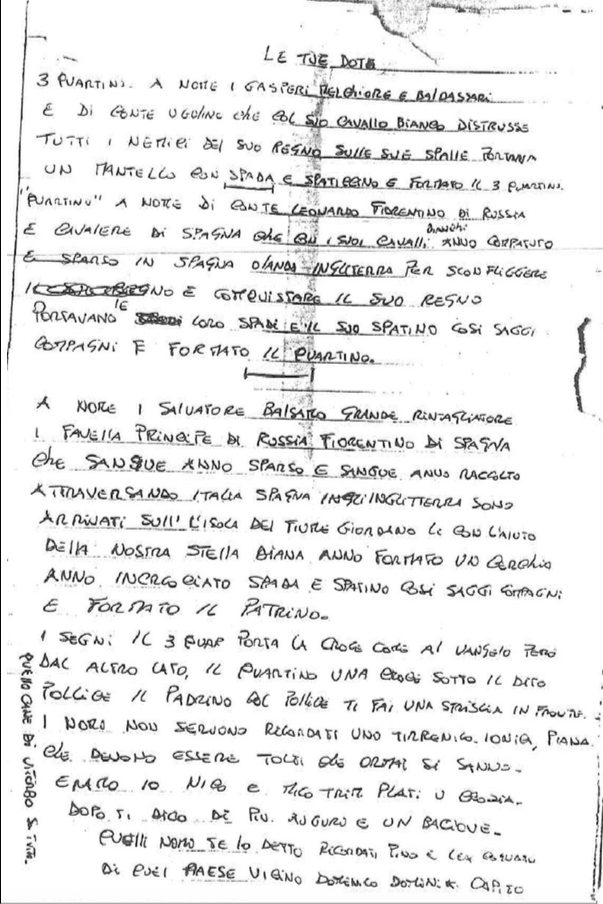 LE TUE DOTE
3 QUARTINO. A NOME I GASPERI MELCHIORE E BALDASSARI
E DI CONTE UGOLINO CHE COL SUO CAVALLO BIANCO DISTRUSSE
TUTTI I NEMICI DEL SUO REGNO SULLE SUE SPALLE PORTAVA
UN MANTELLO CON SPADA E SPATI E FORMATO IL 3 QUARTINO.
"QUARTINO" A NOME DI CONTE LEONARDO FIORENTINO DI RUSSIA
E CAVALERE DI SPAGNA CHE CON I SUOI CAVALLI BIANCHI ANNO
E SPARSO IN SPAGNA OLANDA INGLITERRA PER SCONFLIGGERE
E COMQUISTARE IL SUO REGNO
PORTAVANO LE LORO SPADI E IL SUO SPATINO COSI SAGGI
COMPAGNI E FORMATO IL QUARTINO.
A NOME I SALVATORE BALSAMO GRANDE RINTAGLIATORE
I FAVELLA PRINCIPE DI RUSSIA FIORENTINO DI SPAGNA
CHE SANGUE ANNO SPARSO E SANGUE ANNO RACCOLTO
ATTRAVERSANDO ITALIA SPAGNA INGLITTERRA SONO
ARRIVATI SULL' L'ISOLA DEL FIUME GIORDANO LI CON L'AIUTO
DELLA NOSTRA STELLA DIANA ANNO FORMATO UN CERCHIO
ANNO INCROCIATO SPADA E SPATINO COSI SAGGI COMPAGNI
E FORMATO IL PATRINO.
I SEGNI IL 3 QUAR PORTA LA CROCE COME AL VANGELO PERÒ
DAL ALTRO LATO, IL QUARTINO UNA CROCE SOTTO IL DITO
POLLICE IL PADRINO COL POLLICE TI FAI UNA STRISCIA IN FRONTE.
I NOMI NON SERVONO RICORDATI UNO TIRRENICA. IONICA, PIANA
CHE DEVONO ESSERE TOLTI CHE ORMAI SI SANNO.
ERAMO IO NICO E MICO PLATI U
DOPO TI DICO DI PIU. AUGURO E UN BACIONE.
QUELLI NOMO TE LO DETTO RICORDATI PINO E
DI QUEL PAESE VICINO DOMENICO CAPITO
QUELLO CANE DI VITERBO